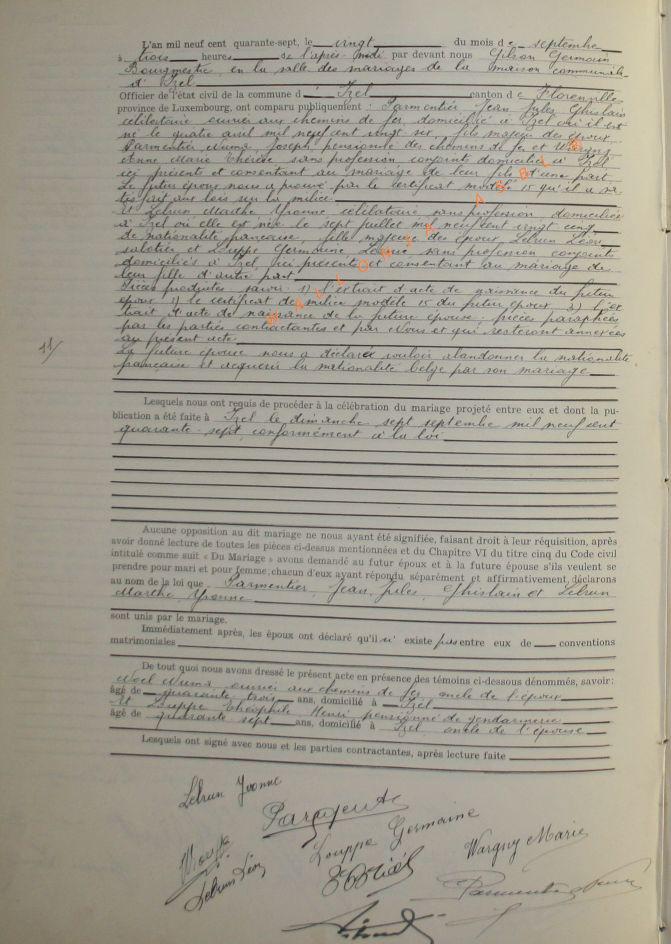 L'an mil neuf cent quarante-sept, le vingt du mois de septembre
à trois heures de l'après-midi par devant nous Gilson Germain
Bourgmestre, en la salle des mariages de la maison communale
d'Izel
Officier de l'état civil de la commune d'Izel canton de Florenville
province de Luxembourg, ont comparu publiquement : Parmentier Jean Jules Ghislain
célibataire ouvrier aux chemins de fer, domicilié à Izel où il est
né le quatre avril mil neuf cent vingt six, fils majeur des époux
Parmentier Numa, Joseph, pensionné des chemins de fer et Wargny
Anne Marie Thérèse sans profession conjoints domiciliés à Izel
ici présents et consentant au mariage de leur fils d'une part
Le futur époux nous a prouvé par le certificat modèle 15 qu'il a sa-
tisfait aux lois sur la milice.
Et Lebrun Marthe Yvonne célibataire sans profession, domiciliée
à Izel où elle est née le sept juillet mil neuf cent vingt cinq
de nationalité française, fille majeure des époux Lebrun Léon
salariée et Louppe Germaine, sans profession conjoints
domiciliés à Izel, ici présents et consentant au mariage de
leur fille d'autre part
Pièces produites savoir : 1) l'extrait d'acte de naissance du futur
époux 2) le certificat de milice modèle 15 du futur époux 3) l'ex
trait d'acte de naissance de la future épouse : pièces paraphées
par les parties contractantes et par Nous et qui resteront annexées
au présent acte.
La future épouse nous a déclaré vouloir abandonner la nationalité
française et acquérir la nationalité belge par son mariage
11/
Lesquels nous ont requis de procéder à la célébration du mariage projeté entre eux et dont la pu-
blication a été faite à Izel le dimanche sept septembre mil neuf cent
quarante-sept, conformément à la loi
Aucune opposition au dit mariage ne nous ayant été signifiée, faisant droit à leur réquisition, après
avoir donné lecture de toutes les pièces ci-dessus mentionnées et du Chapitre VI du titre cinq du Code civil
intitulé comme suit « Du Mariage » avons demandé au futur époux et à la future épouse s'ils veulent se
prendre pour mari et pour femme; chacun d'eux ayant répondu séparément et affirmativement, déclarons
au nom de la loi que Parmentier, Jean, Jules, Ghislain et Lebrun
Marthe, Yvonne
sont unis par le mariage.
Immédiatement après, les époux ont déclaré qu'il n'existe pas entre eux de conventions
matrimoniales
De tout quoi nous avons dressé le présent acte en présence des témoins ci-dessous dénommés, savoir :
Noël Numa ouvrier aux chemins de fer, oncle de l'époux
âgé de quarante trois ans, domicilié à Izel
Et Louppe Théophile Henri pensionné de gendarmerie
âgé de quarante sept ans, domicilié à Izel, oncle de l'épouse
Lesquels ont signé avec nous et les parties contractantes, après lecture faite
Lebrun Yvonne
Louppe Germaine
Wargny Marie
Lebrun Léon
Parmentier Numa